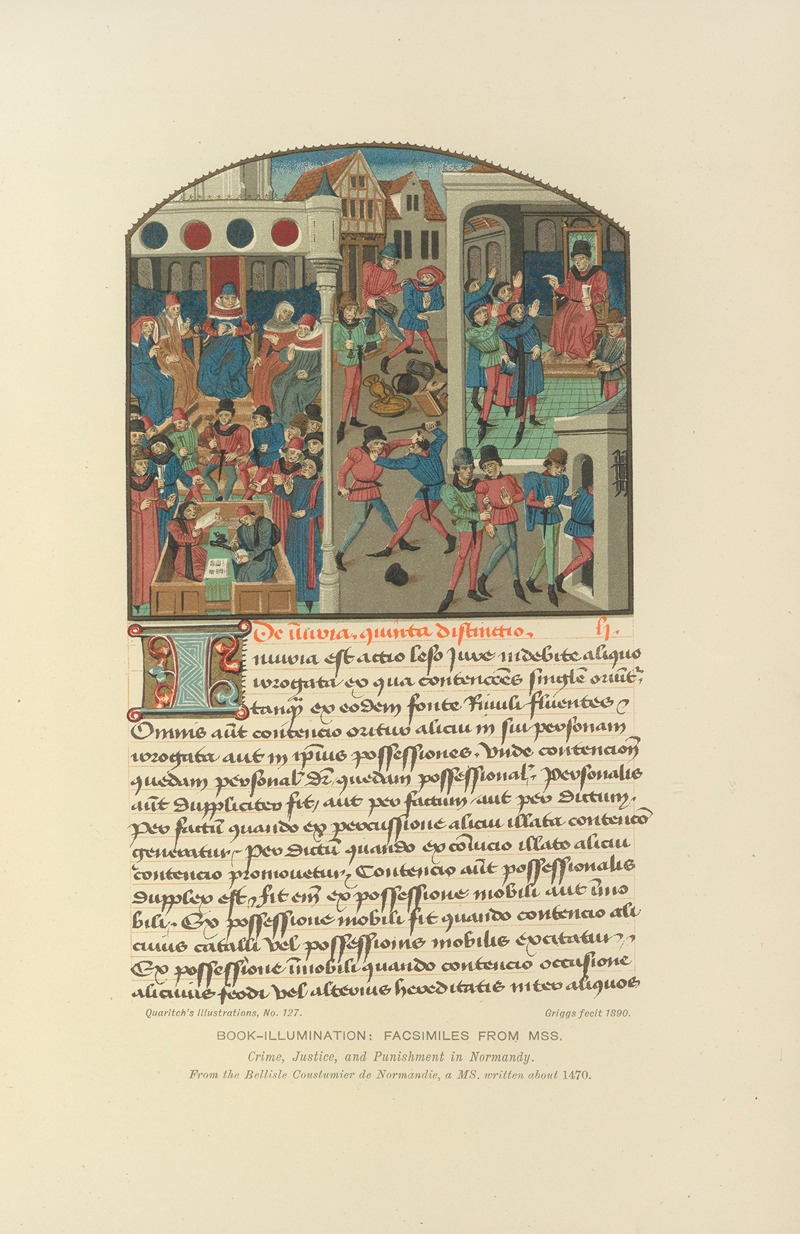 De iniuria. quinta distinctio. li.
Iniuria est actio leso Jure indebite aliquo
irrogata ex qua contencões singlē oriūt᷑
tanq̄ ex eodem fonte Riuuli fluentes
Omnis aūt contencio oritur alicui in sui personam
irrogata aut in ip̄ius possessiones. Vnde contencionū
quedam personal᷑ dr̄ quedam possessional᷑. Personalis
aūt Duppliciter fit / aut per factum aut per Dictum.
Per factū quando ex percussione alicui illata contencō
generatur. Per Dictū quando ex cōuicio illato alicui
contencio promouetur. Contencio aūt possessionalis
Dupplex est. fit em̄ ex possessione mobili aut īmo
bili. Ex possessione mobili fit quando contencio ali
cuius catalli Vel possessionis mobilis excitatur
Ex possessione īmobili quando contencio occasione
alicuius feodi Vel alterius hereditatis inter aliquos
Quaritch's Illustrations, No. 127.
Griggs fecit 1890.
BOOK-ILLUMINATION: FACSIMILES FROM MSS.
Crime, Justice, and Punishment in Normandy.
From the Bellisle Coustumier de Normandie, a MS. written about 1470.